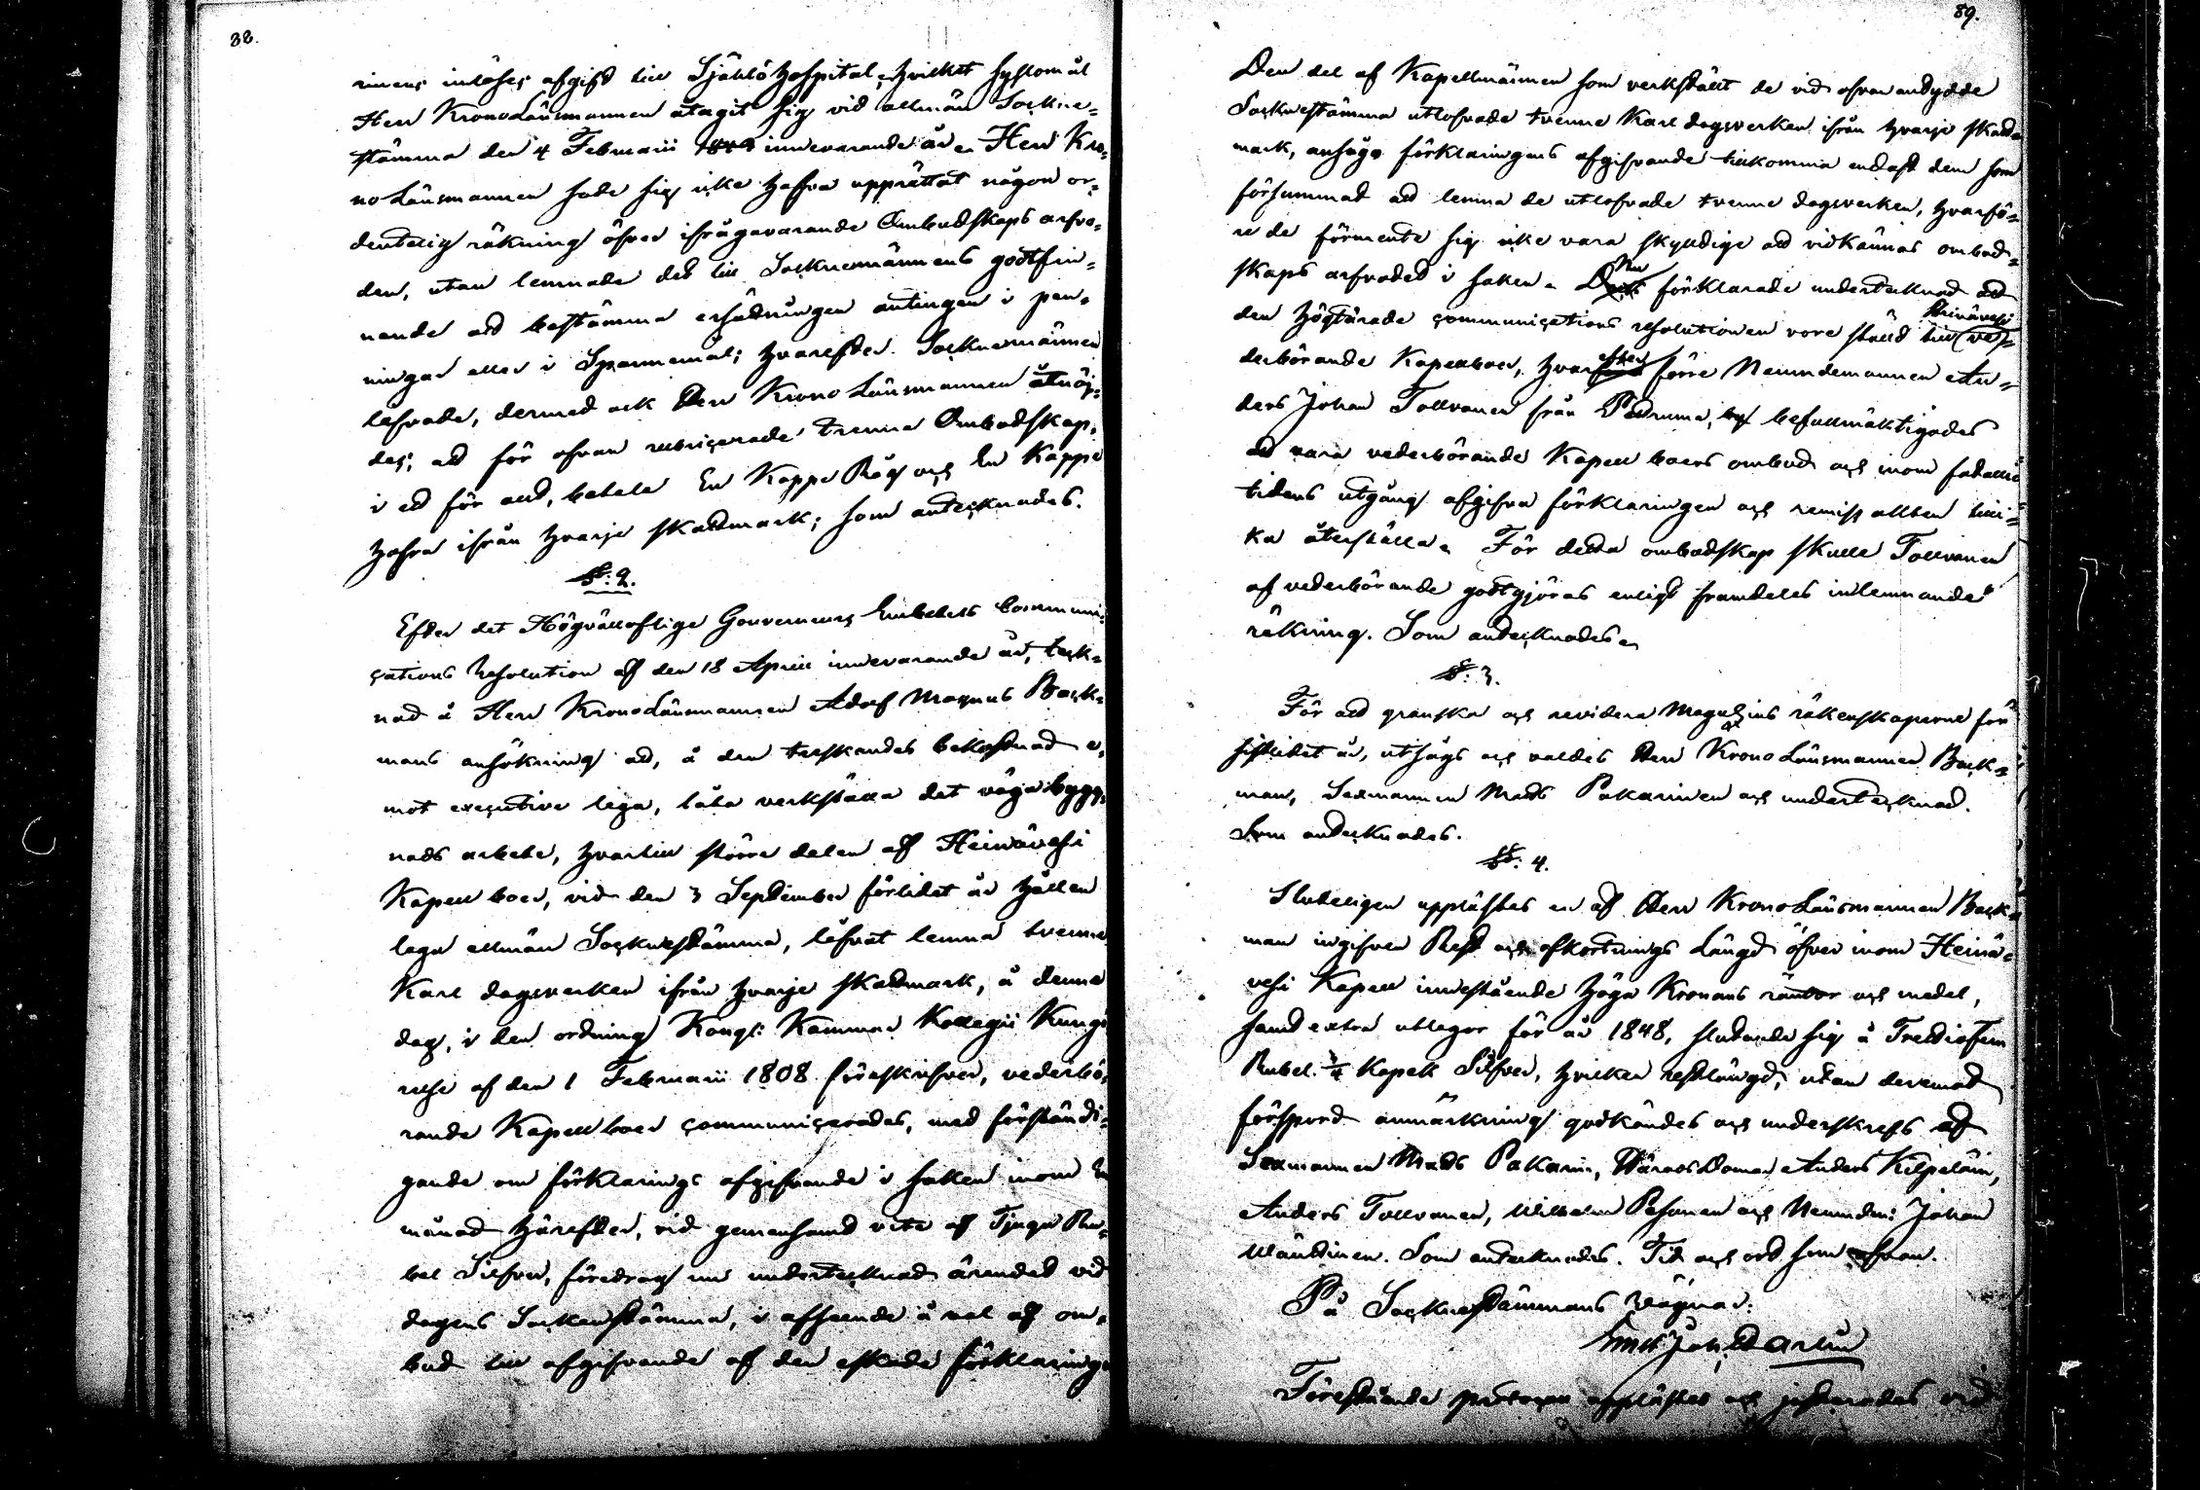 88.
rinens inlöses afgift till Själö Hospital, hvilket syslomål
Herr KronoLänsmannen åtagit sig vid allmän Sockne-
stämma den 4 Februarii innevarande år. Herr Kro-
noLänsmannen sade sig icke hafva upprättat någon or-
dentelig räkning öfver ifrågavarande Ombudskaps arfvo-
den, utan lemnade det till Socknemännens godtfin-
nande att bestämma ersättningen antingen i pen-
ningar eller i Spannemål; hvarefter Socknemännen
låfvade, dermed ock Herr KronoLänsmannen åtnöj-
des; att för ofvan rubricerade trenne Ombudskap,
i ett för allt, betala En Kappe Råg och En Kappe
Hafra ifrån hvarje skattmark; som antecknades.
§: 2.
Efter det Högvällofliga Gouvernements Embetets Communi-
cations Resolution af den 18 April innevarande år, teck-
nad å Herr KronoLänsmannen Adolf Magnus Back-
mans ansökning att, å den tredskandes bekostnad e-
mot executive lega, låta verkställa det vägabygg-
nads arbete, hvartill större delen af Heinävesi
Kapellboer, vid den 3 September förlidet år hållen
laga allmän Socknestämma, låfvat lemna trenne
Karl dagsverken ifrån hvarje skattmark, å denna
dag, i den ordning Kongl: Kammar Kollegii Kungö-
relse af den 1 Februarii 1808 föreskifver, vederbö-
rande Kapellboer communicerades, med förständi-
gande om förklarings afgifvande i saken inom En
månad härefter, vid gemensamt vite af Tjugu Ru-
bel Silfver, föredrog nu undertecknad ärendet vid
dagens Sockenstämma, i afseende å val af om-
bud till afgifvande af den äskade förklaringen
89.
Den del af Kapellmännen som verkstält de vid ofvan antydde
Socknestämma utlofvade trenne Karl dagsverken ifrån hvarje skatt-
mark, ansågo förklaringens afgifvande tillkomma endast dem som
försummat att lemna de utlofvade trenne dagsverken, hvarfö-
re de förmente sig icke vara skyldige att vidkännas ombud-
skaps arfvodet i saken. Nu förklarade undertecknad att
den högtärade communications resolutionen vore stäld till Heinävesi ve-
derbörande Kapellboer, hvarefter förre Nämndemannen An-
ders Johan Tollvanen från Petruma, befullmäktigades
att vara vederbörande Kapellboers ombud och inom fatallie
tidens utgång afgifva förklaringen och remiss akten till-
ka återställa. För detta ombudskap skulle Tollvanen
af vederbörande godtgjöras enligt framdeles inlemnande
räkning. Som antecknades.
§: 3.
För att granska och revidera Magazins räkenskaperne för
sistlidet år, utsågs och valdes Herr KronoLänsmannen Back-
man, Sexmannen Mats Pakarinen och undertecknad.
Som antecknades.
§: 4.
Slutligen upplästes en af Herr KronoLänsmannen Back-
man ingifven Rest och afkortnings Längd öfver inom Heinä-
vesi Kapell innestående höga Kronans räntor och medel,
samt extra utlagor för år 1848, slutande sig å Trettiofem
Rubel Kopek Silfver, hvilken restlängd, utan deremot
förspord anmärkning godkändes och underskrefs af
Sexmannen Mats Pakarin, Anders Kilpeläin,
Anders Tollvanen, Wilhelm Pesonen och Nämndem: Johan
Som antecknades. Tid och ort som ofvan.
På Socknestämmans vägnar:
Emil Joh. Darlin
Förestående protocoll upplästes och justerades vid